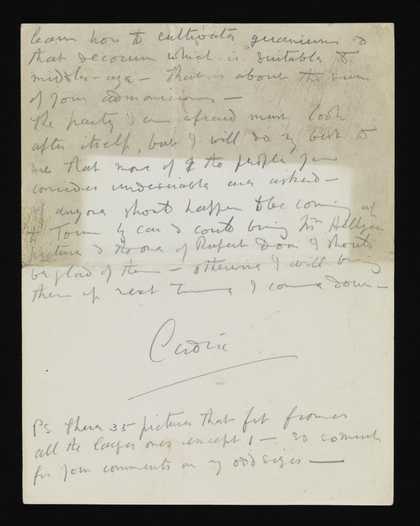 learn how to cultivate geraniums &
that decorum which is suitable to
middle-age — that is about the sum
of your admonitions —
The party I am afraid must look
after itself, but I will do my best to
see that none of the people you
consider undesirable are asked —
If anyone should happen to be coming up
to Town by car & could bring
picture & the one of Rupert Doone I should
be glad of them — otherwise I will bring
them up next time I come down —
Cedric
PS. There 35 pictures that fit frames
all the larger ones except 1 — so so much
for your comments on my odd sizes —